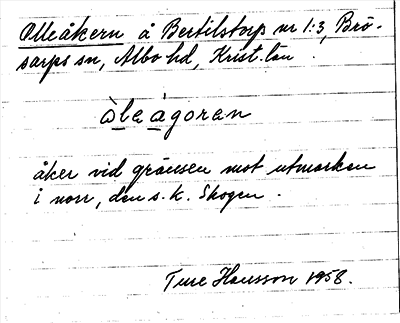 Olleåkern å Bertilstorp nr 1:3, Brö-
sarps sn, Albo hd, Krist. län.
òleàgoren
åker vid gränsen mot utmarken
i norr, den s.k. Skogen.
Ture Hansson 1958.